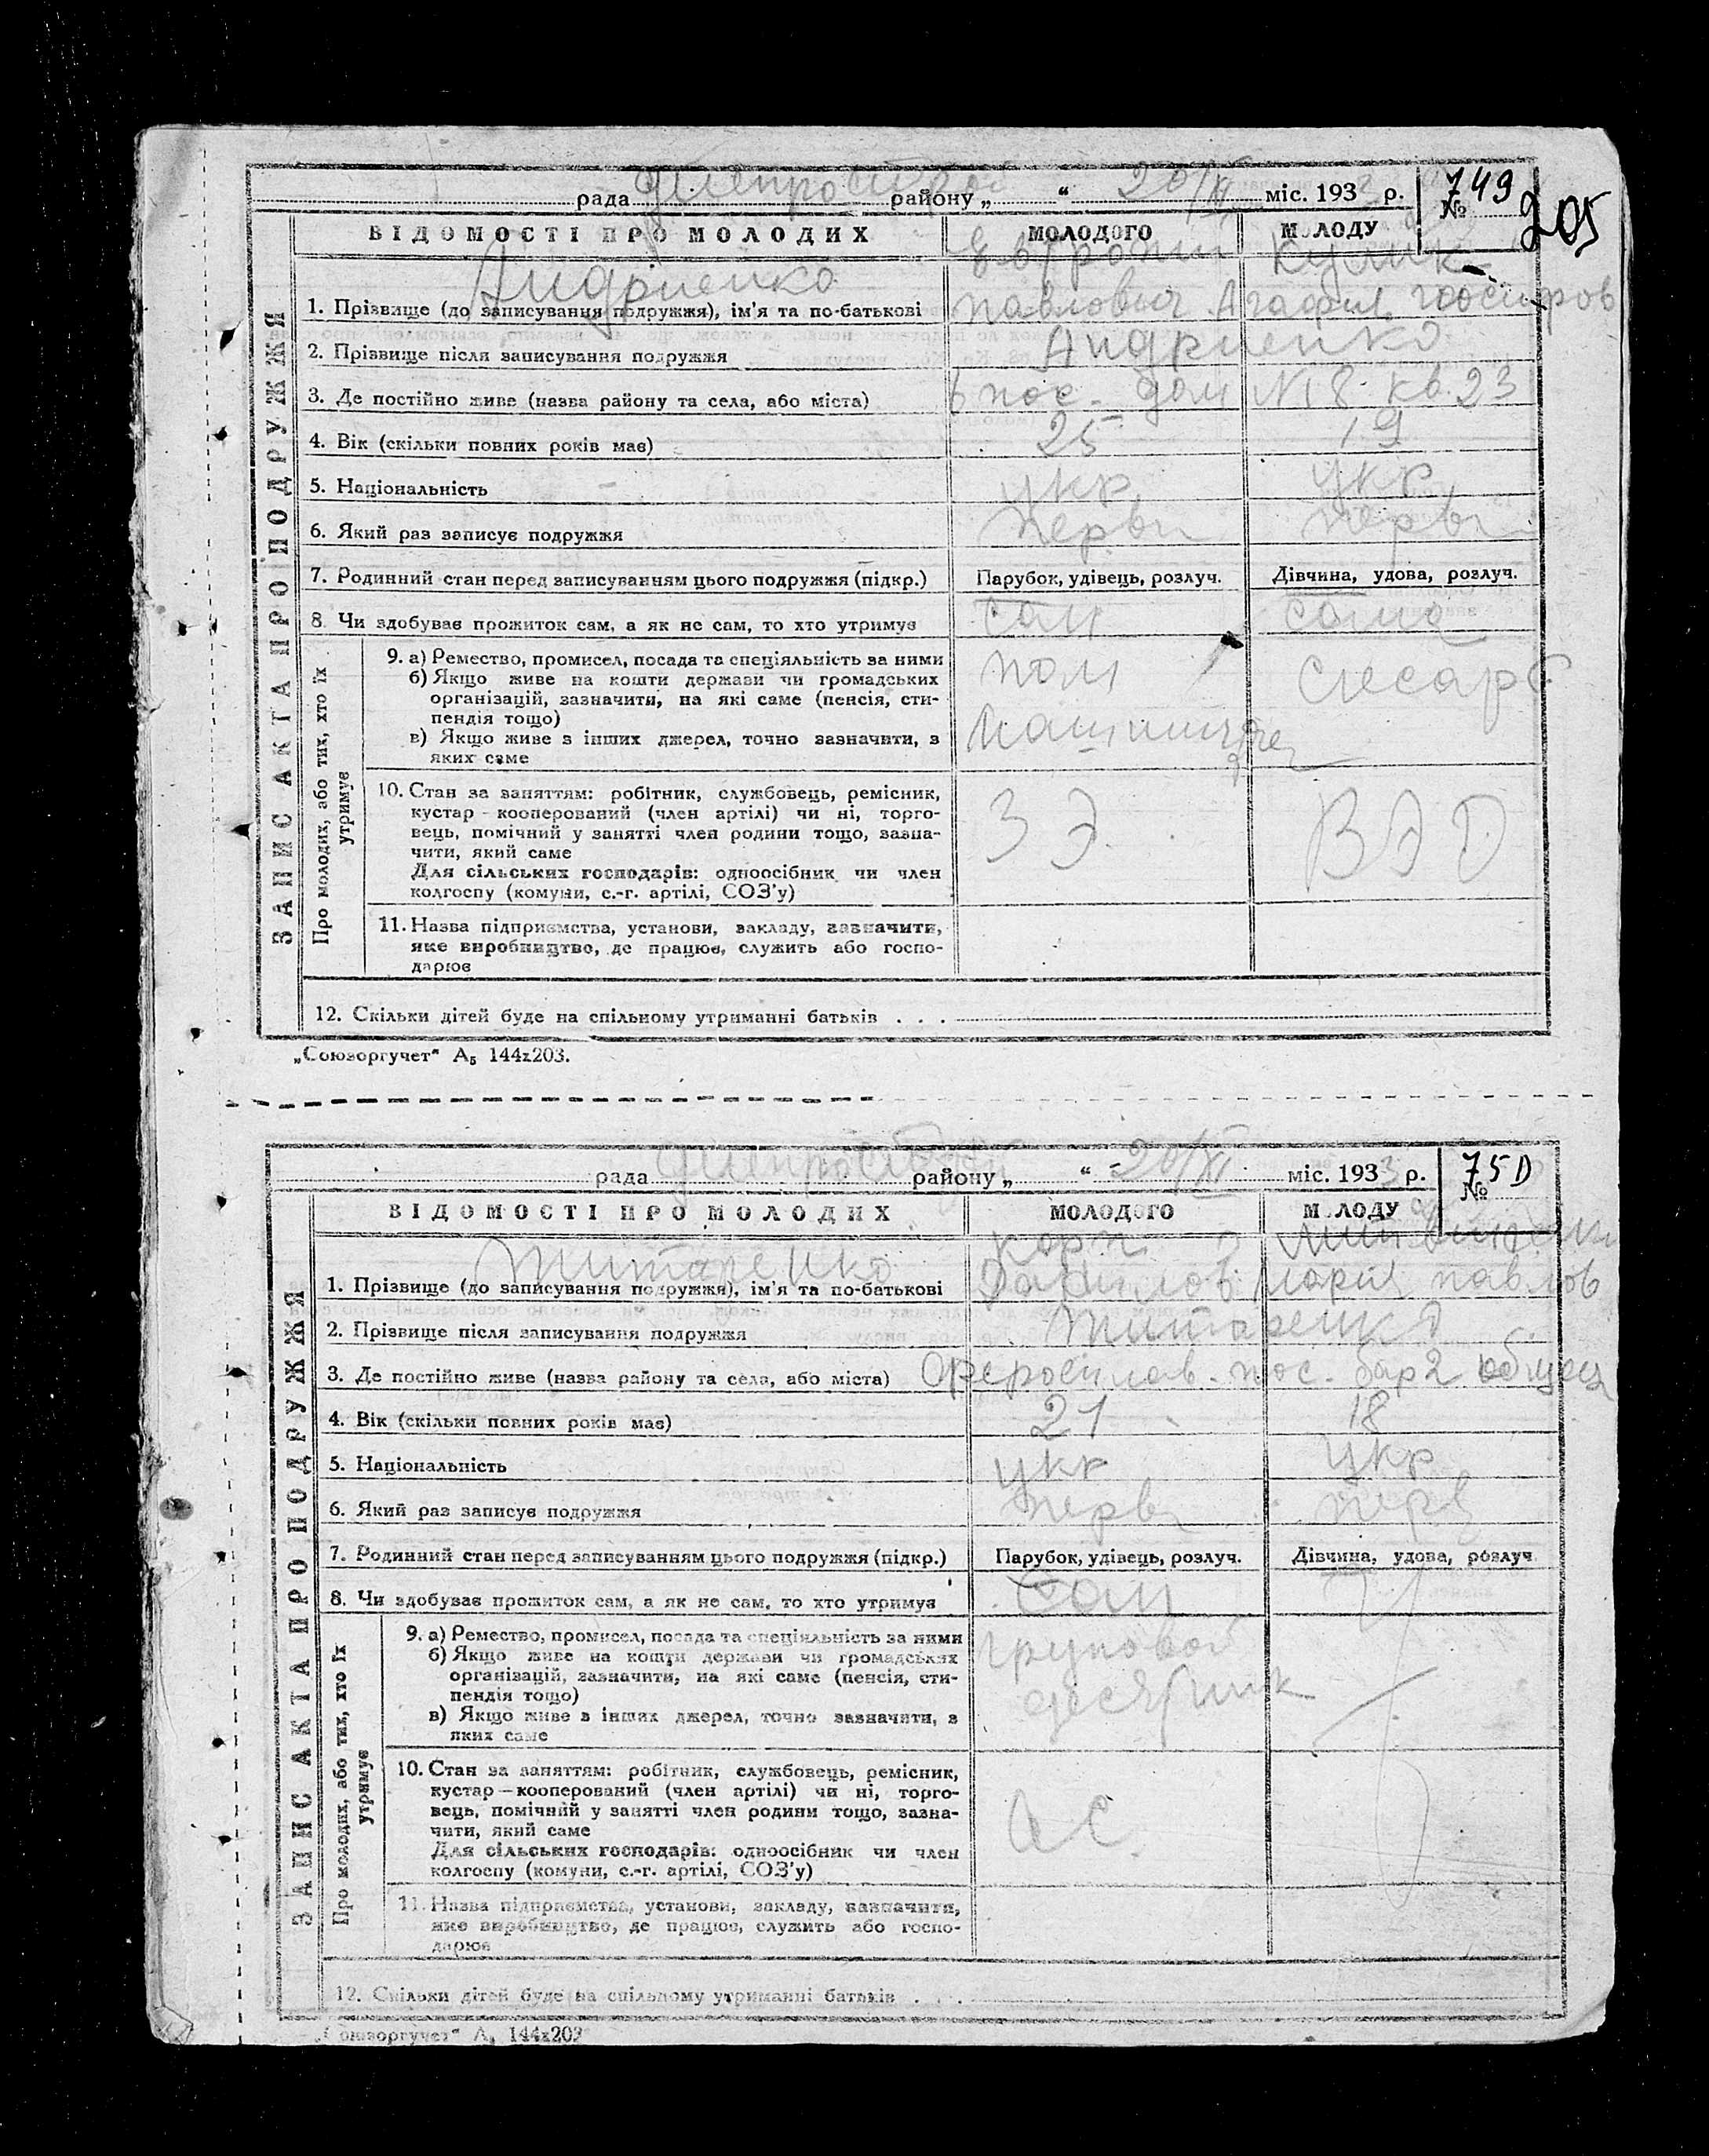 рада Днепрострой району „ “ 20/XI міс. 193 р. № 749
205
ВІДОМОСТІ ПРО МОЛОДИХ МОЛОДОГО МОЛОДУ
ЗАПИС АКТА ПРО ПОДРУЖЖЯ
Андриенко Кулик
1. Прізвище (до записування подружжя), ім'я та по-батькові Павлович Агафия
2. Прізвище після записування подружжя Андриенко
3. Де постійно живе (назва району та села, або міста) 6 пос. дом №18 кв. 23
4. Вік (скільки повних років має) 25 19
5. Національність укр укр
6. Який раз записує подружжя перви перви
7. Родинний стан перед записуванням цього подружжя (підкр.) Парубок, удівець, розлуч. Дівчина, удова, розлуч.
8. Чи здобуває прожиток сам, а як не сам, то хто утримує сам сама
Про молодих, або тих, хто їх утримує
9. а) Ремество, промисел, посада та спеціяльність за ними пом слесарь
б) Якщо живе на кошти держави чи громадських
організацій, зазначити, на які саме (пенсія, сти-
пендія тощо)
в) Якщо живе з інших джерел, точно зазначити, з
яких саме
10. Стан за заняттям: робітник, службовець, ремісник,
кустар - кооперований (член артілі) чи ні, торго-
вець, помічний у занятті член родини тощо, зазна-
чити, який саме
Для сільських господарів: одноосібник чи член
колгоспу (комуни, с.-г. артілі, СОЗ'у)
11. Назва підприємства, установи, закладу, зазначити,
яке виробництво, де працює, служить або госпо-
дарює
12. Скільки дітей буде на спільному утриманні батьків . . .
„Союзоргучет“ А5 144х203.
рада Днепрострой району „ “ 20/XI міс. 1933 р. № 750
ВІДОМОСТІ ПРО МОЛОДИХ МОЛОДОГО МОЛОДУ
ЗАПИС АКТА ПРО ПОДРУЖЖЯ
Титаренко
1. Прізвище (до записування подружжя), ім'я та по-батькові Данилов Мария Павлов
2. Прізвище після записування подружжя Титаренко
3. Де постійно живе (назва району та села, або міста) Ферросплав. пос. бар 2 общеж
4. Вік (скільки повних років має) 21 18
5. Національність укр укр
6. Який раз записує подружжя перви перв
7. Родинний стан перед записуванням цього подружжя (підкр.) Парубок, удівець, розлуч. Дівчина, удова, розлуч.
8. Чи здобуває прожиток сам, а як не сам, то хто утримує сам
Про молодих, або тих, хто їх утримує
9. а) Ремество, промисел, посада та спеціяльність за ними груповой
б) Якщо живе на кошти держави чи громадських
організацій, зазначити, на які саме (пенсія, сти- десятник
пендія тощо)
в) Якщо живе з інших джерел, точно зазначити, з
яких саме
10. Стан за заняттям: робітник, службовець, ремісник,
кустар — кооперований (член артілі) чи ні, торго-
вець, помічний у занятті член родини тощо, зазна-
чити, який саме
Для сільських господарів: одноосібник чи член
колгоспу (комуни, с.-г. артілі, СОЗ'у)
11. Назва підприємства, установи, закладу, зазначити,
яке виробництво, де працює, служить або госпо-
дарює
12. Скільки дітей буде на спільному утриманні батьків . . .
„Союзоргучет“ А5 144х203